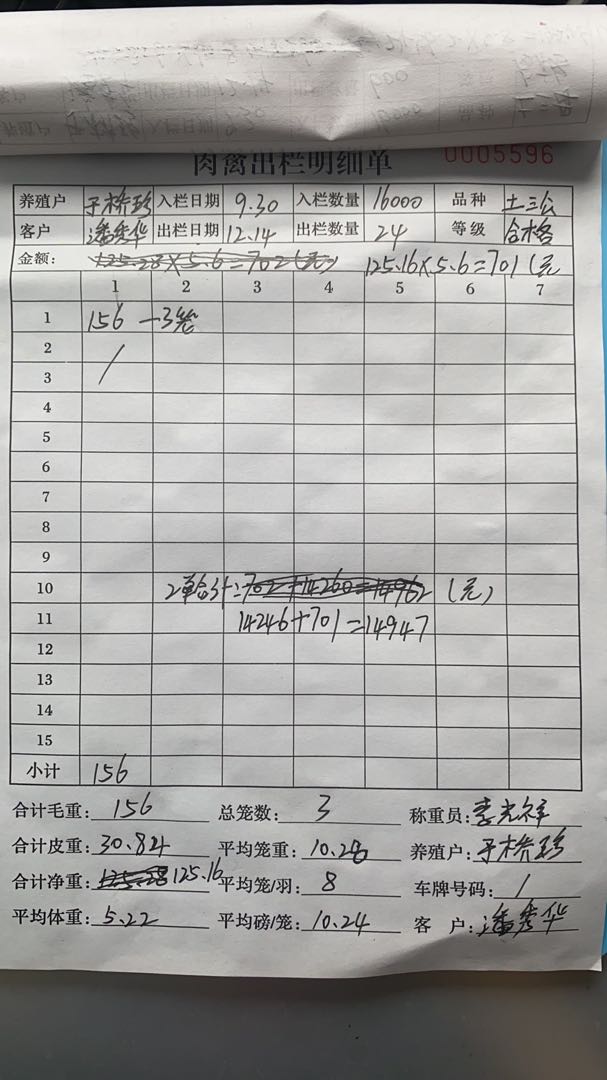 肉禽出栏明细单 0005596
养殖户 于桥珍 入栏日期 9.30 入栏数量 16000 品种 土三公
客户 潘秀华 出栏日期 12.14 出栏数量 24 等级 合格
金额: 125.28×5.6=702(元) 125.16×5.6=701(元
1 2 3 4 5 6 7
1 156 -3笼
2
3
4
5
6
7
8
9
10 2单合计:702+14260=14962 (元)
11 14246+701=14947
12
13
14
15
小计 156
合计毛重: 156 总笼数: 3 称重员: 李光祥
合计皮重: 30.84 平均笼重: 10.28 养殖户: 于桥珍
合计净重: 125.28 125.16 平均笼/羽: 8 车牌号码: /
平均体重: 5.22 平均磅/笼: 10.24 客 户: 潘秀华